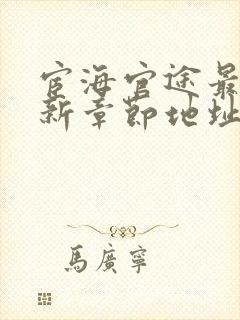 宦海官途最
新章節地址
馬廣寧